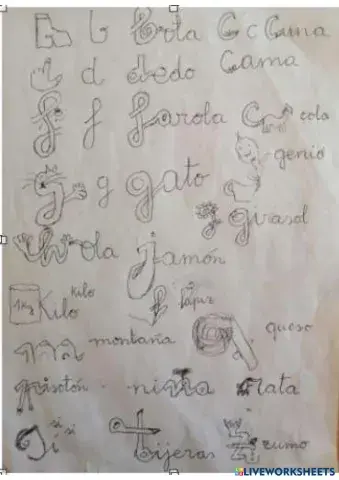 b bola C c Cuna
d dedo Cama
f farola C cola
genio
g g gato
g girasol
hola jamón
1Kg Kilo kilo lápiz
montaña queso
pisotón niña rata
Si si si tijeras Z zumo
LIVEWORKSHEETS